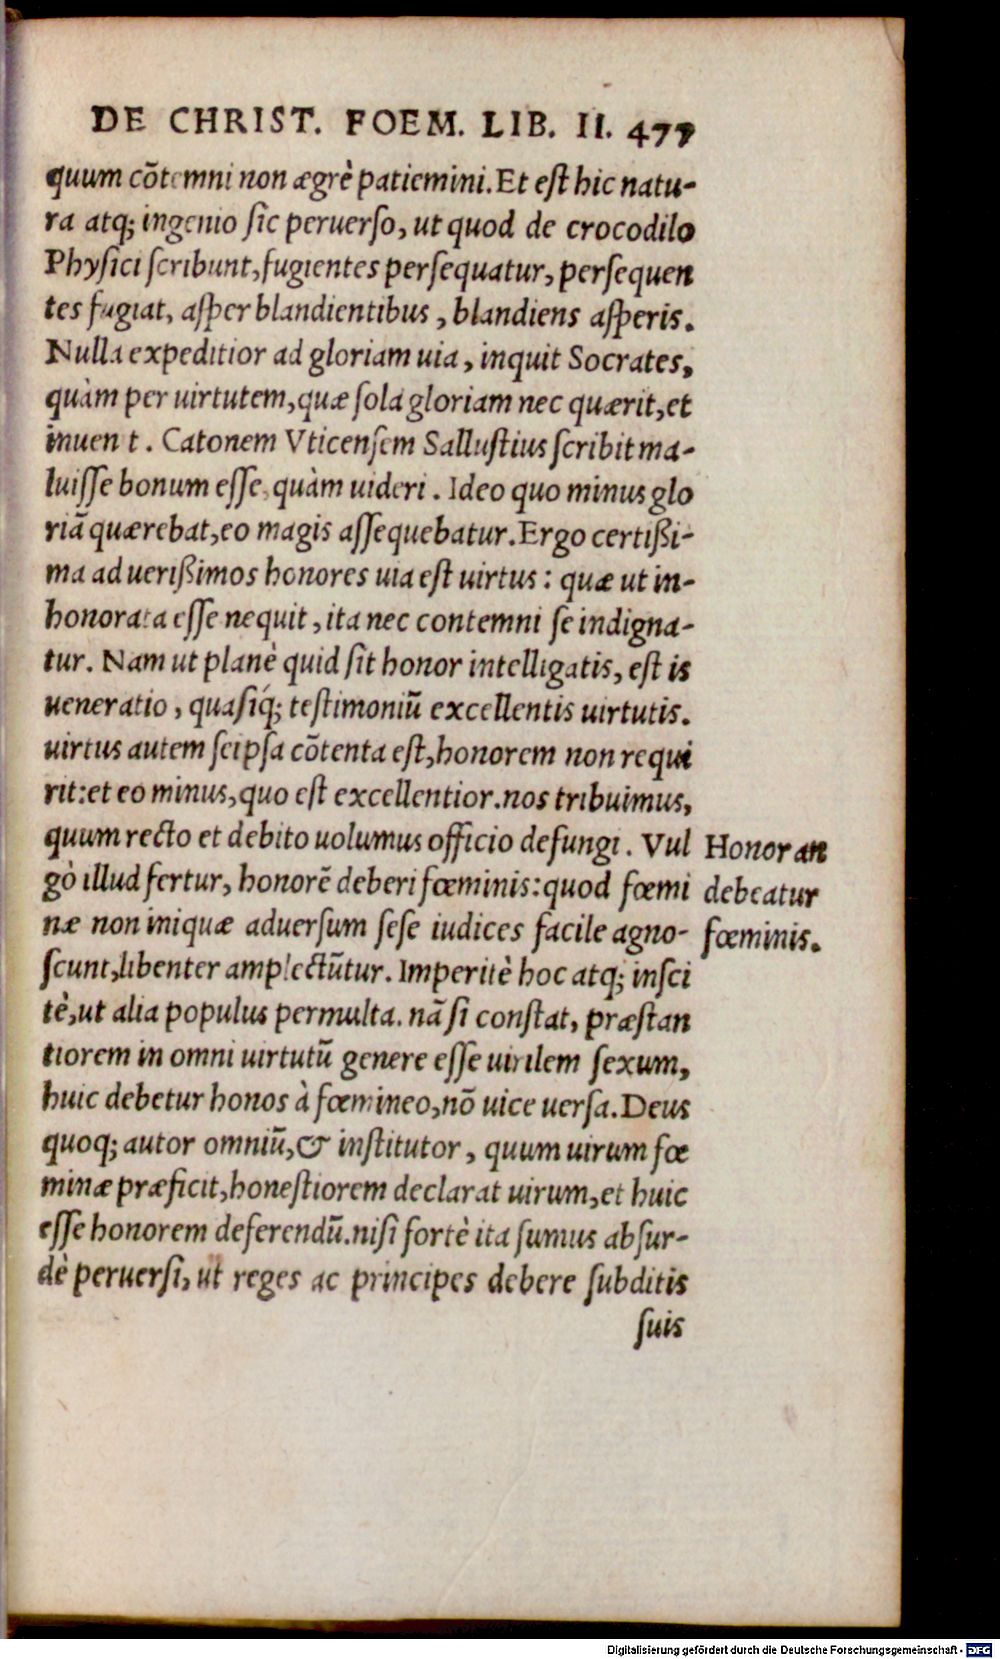 DE CHRIST. FOEM. LIB. II. 477
quum cõtemni non ægrè patiemini. Et est hic natu-
ra atq; ingenio sic peruerso, ut quod de crocodilo
Physici scribunt, fugientes persequatur, persequen
tes fugiat, asper blandientibus, blandiens asperis.
Nulla expeditior ad gloriam uia, inquit Socrates,
quàm per uirtutem, quæ sola gloriam nec quærit, et
inuen t. Catonem Vticensem Sallustius scribit ma-
luisse bonum esse, quàm uideri. Ideo quo minus glo
riã quærebat, eo magis assequebatur. Ergo certißi-
ma ad uerißimos honores uia est uirtus: quæ ut in-
honorata esse nequit, ita nec contemni se indigna-
tur. Nam ut planè quid sit honor intelligatis, est is
ueneratio, quasiq́; testimoniũ excellentis uirtutis.
uirtus autem seipsa cõtenta est, honorem non requi
rit: et eo minus, quo est excellentior. nos tribuimus,
quum recto et debito uolumus officio defungi. Vul
gò illud fertur, honorẽ deberi fœminis: quod fœmi
næ non iniquæ aduersum sese iudices facile agno-
scunt, libenter amplectũtur. Imperitè hoc atq; insci
tè, ut alia populus permulta. nã si constat, præstan
tiorem in omni uirtutũ genere esse uirilem sexum,
huic debetur honos à fœmineo, nõ uice uersa. Deus
quoq; autor omniũ, & institutor, quum uirum fœ
minæ præficit, honestiorem declarat uirum, et huic
esse honorem deferendũ. nisi fortè ita sumus absur-
dè peruersi, ut reges ac principes debere subditis
suis
Honor an
debeatur
fœminis.
Digitalisierung gefördert durch die Deutsche Forschungsgemeinschaft - DFG